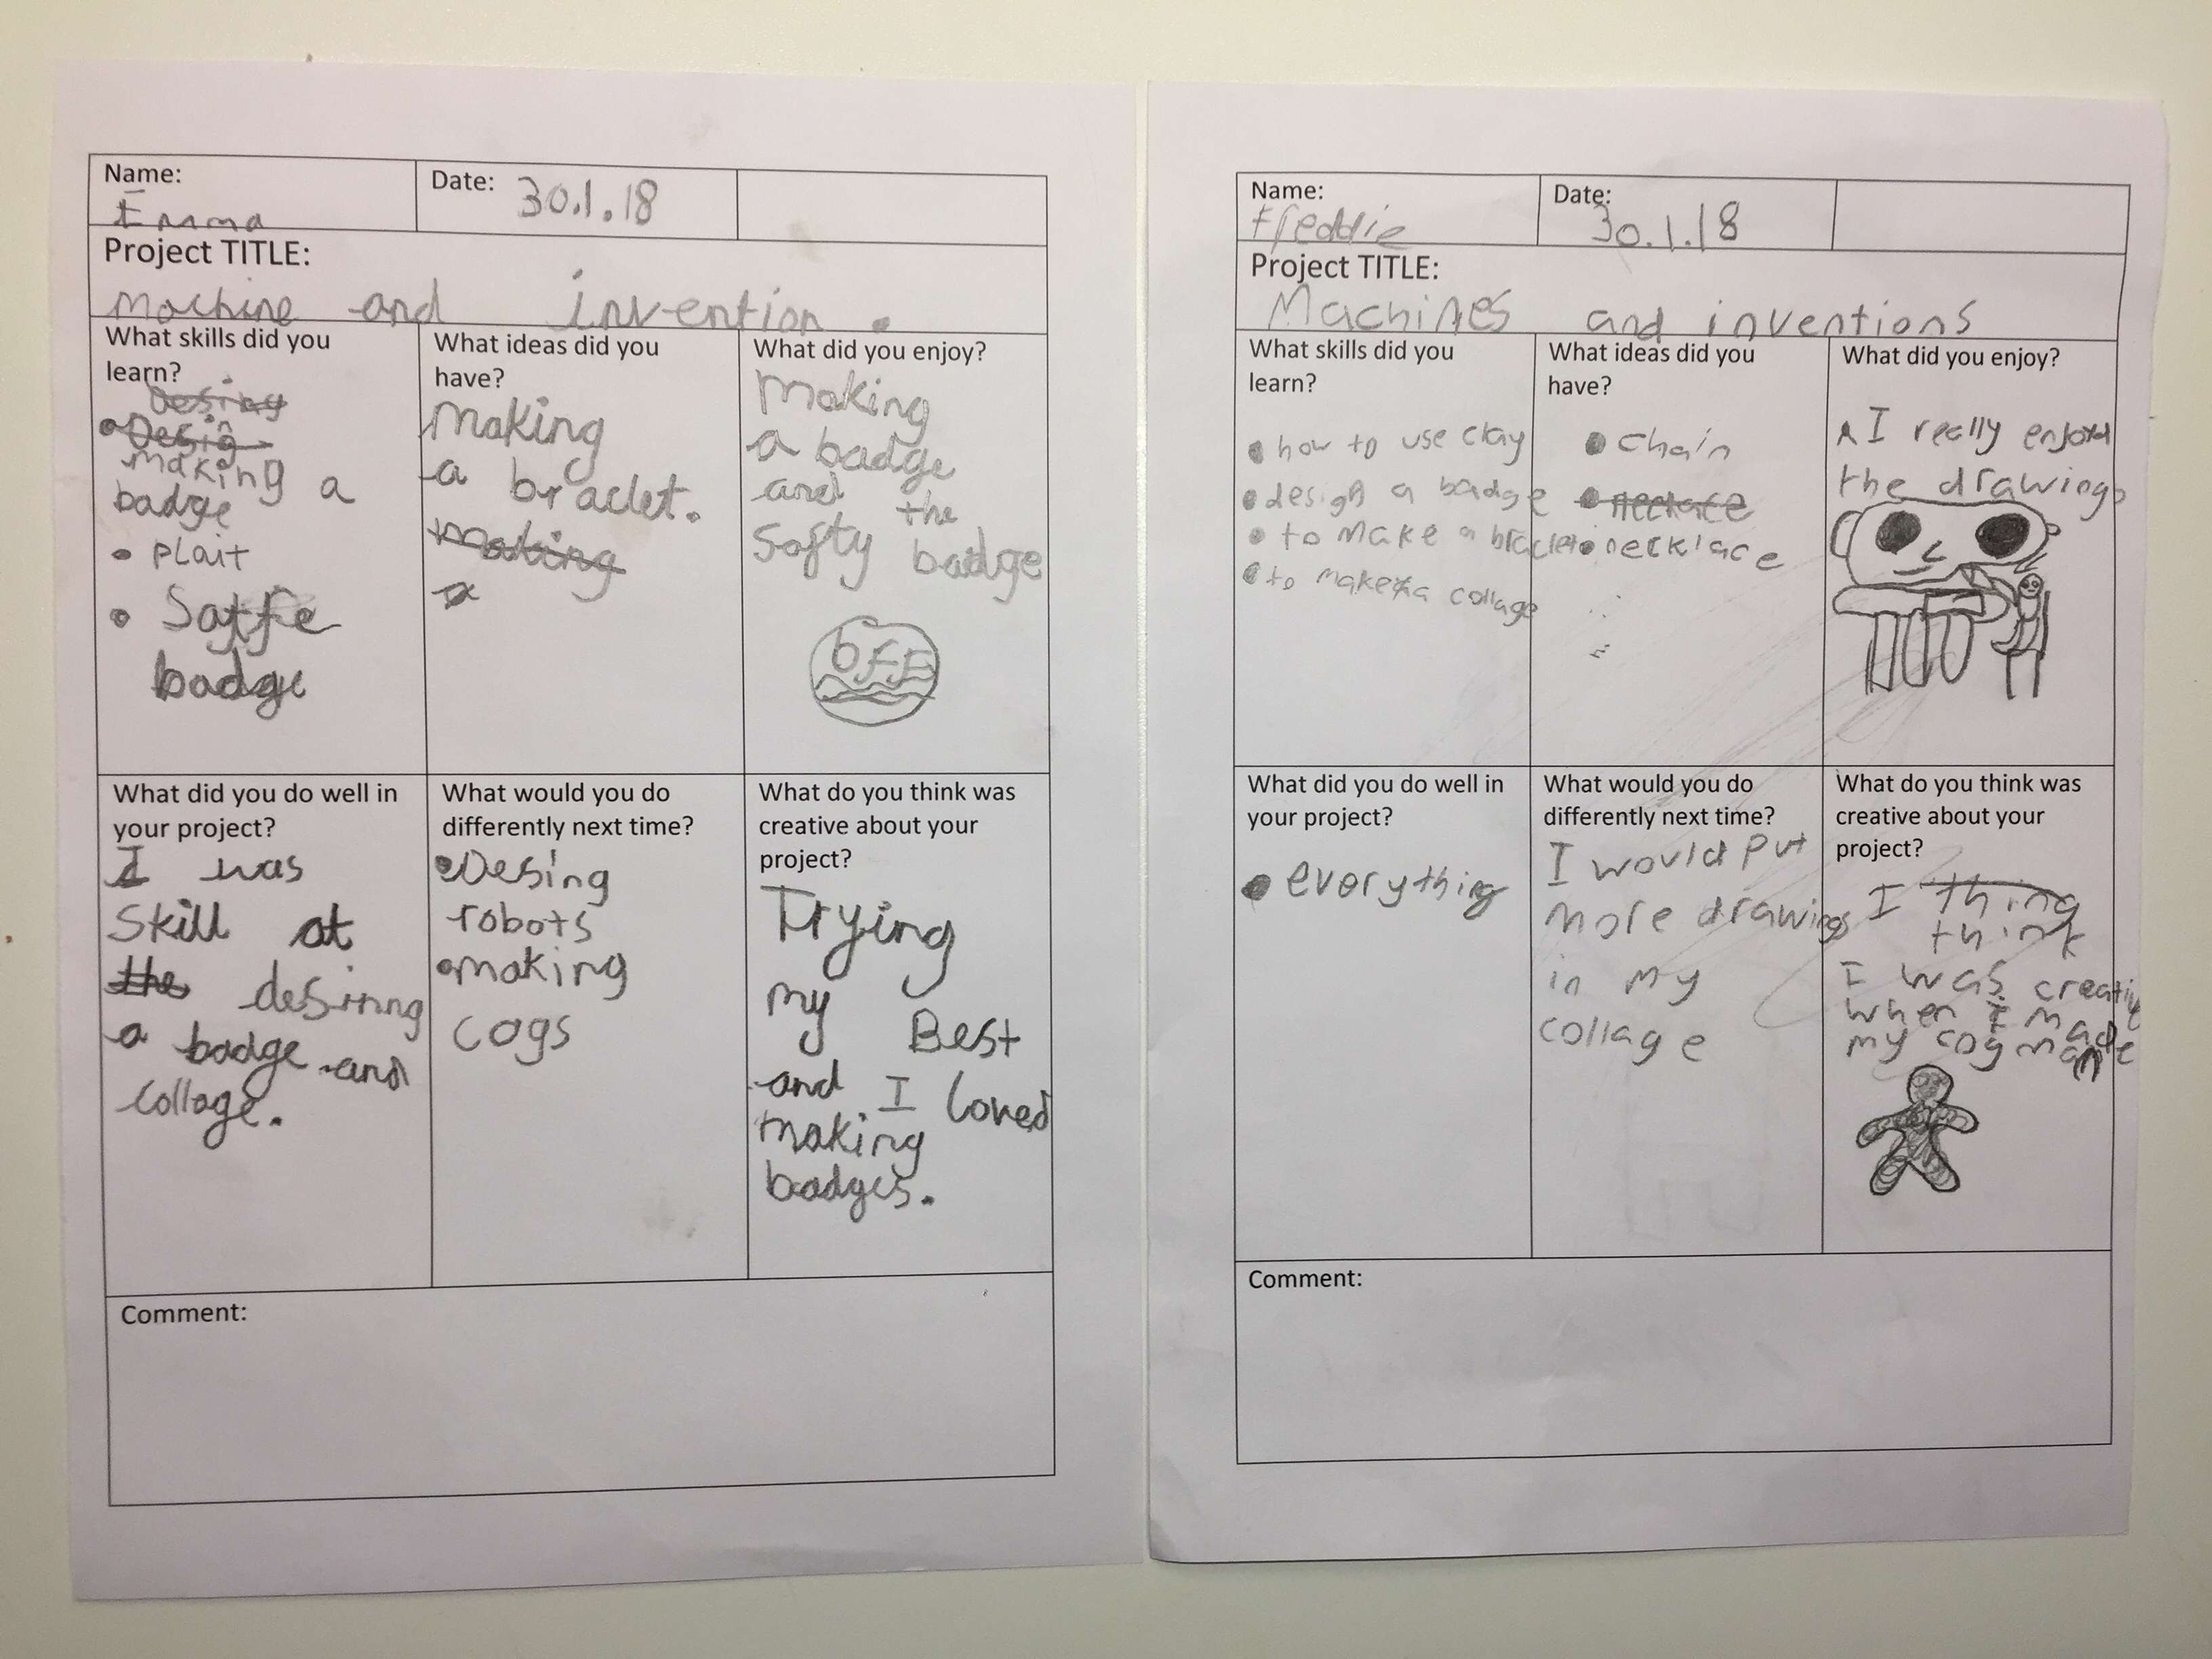 Name:
Emma
Date: 30.1.18
Project TITLE:
Machine and invention.
What skills did you
learn?
Desing
• Desig
making a
badge
• plait
• Satfe
badge
What ideas did you
have?
Making
a braclet.
making
a
What did you enjoy?
Making
a badge
and the
Softy badge
bff
What did you do well in
your project?
I was
Skill at
the desining
a badge and
collage.
What would you do
differently next time?
• Desing
robots
• making
cogs
What do you think was
creative about your
project?
Trying
my Best
and I loved
making
badges.
Comment:
Name:
Freddie
Date:
30.1.18
Project TITLE:
Machines and inventions
What skills did you
learn?
• how to use clay
• design a badge
• to make a braclet
• to make a collage
What ideas did you
have?
• chain
• necklace
What did you enjoy?
I really enjoyed
the drawings
What did you do well in
your project?
• everything
What would you do
differently next time?
I would put
more drawings
in my
collage
What do you think was
creative about your
project?
I thing
think
I was creative
when I made
my cog man
Comment: